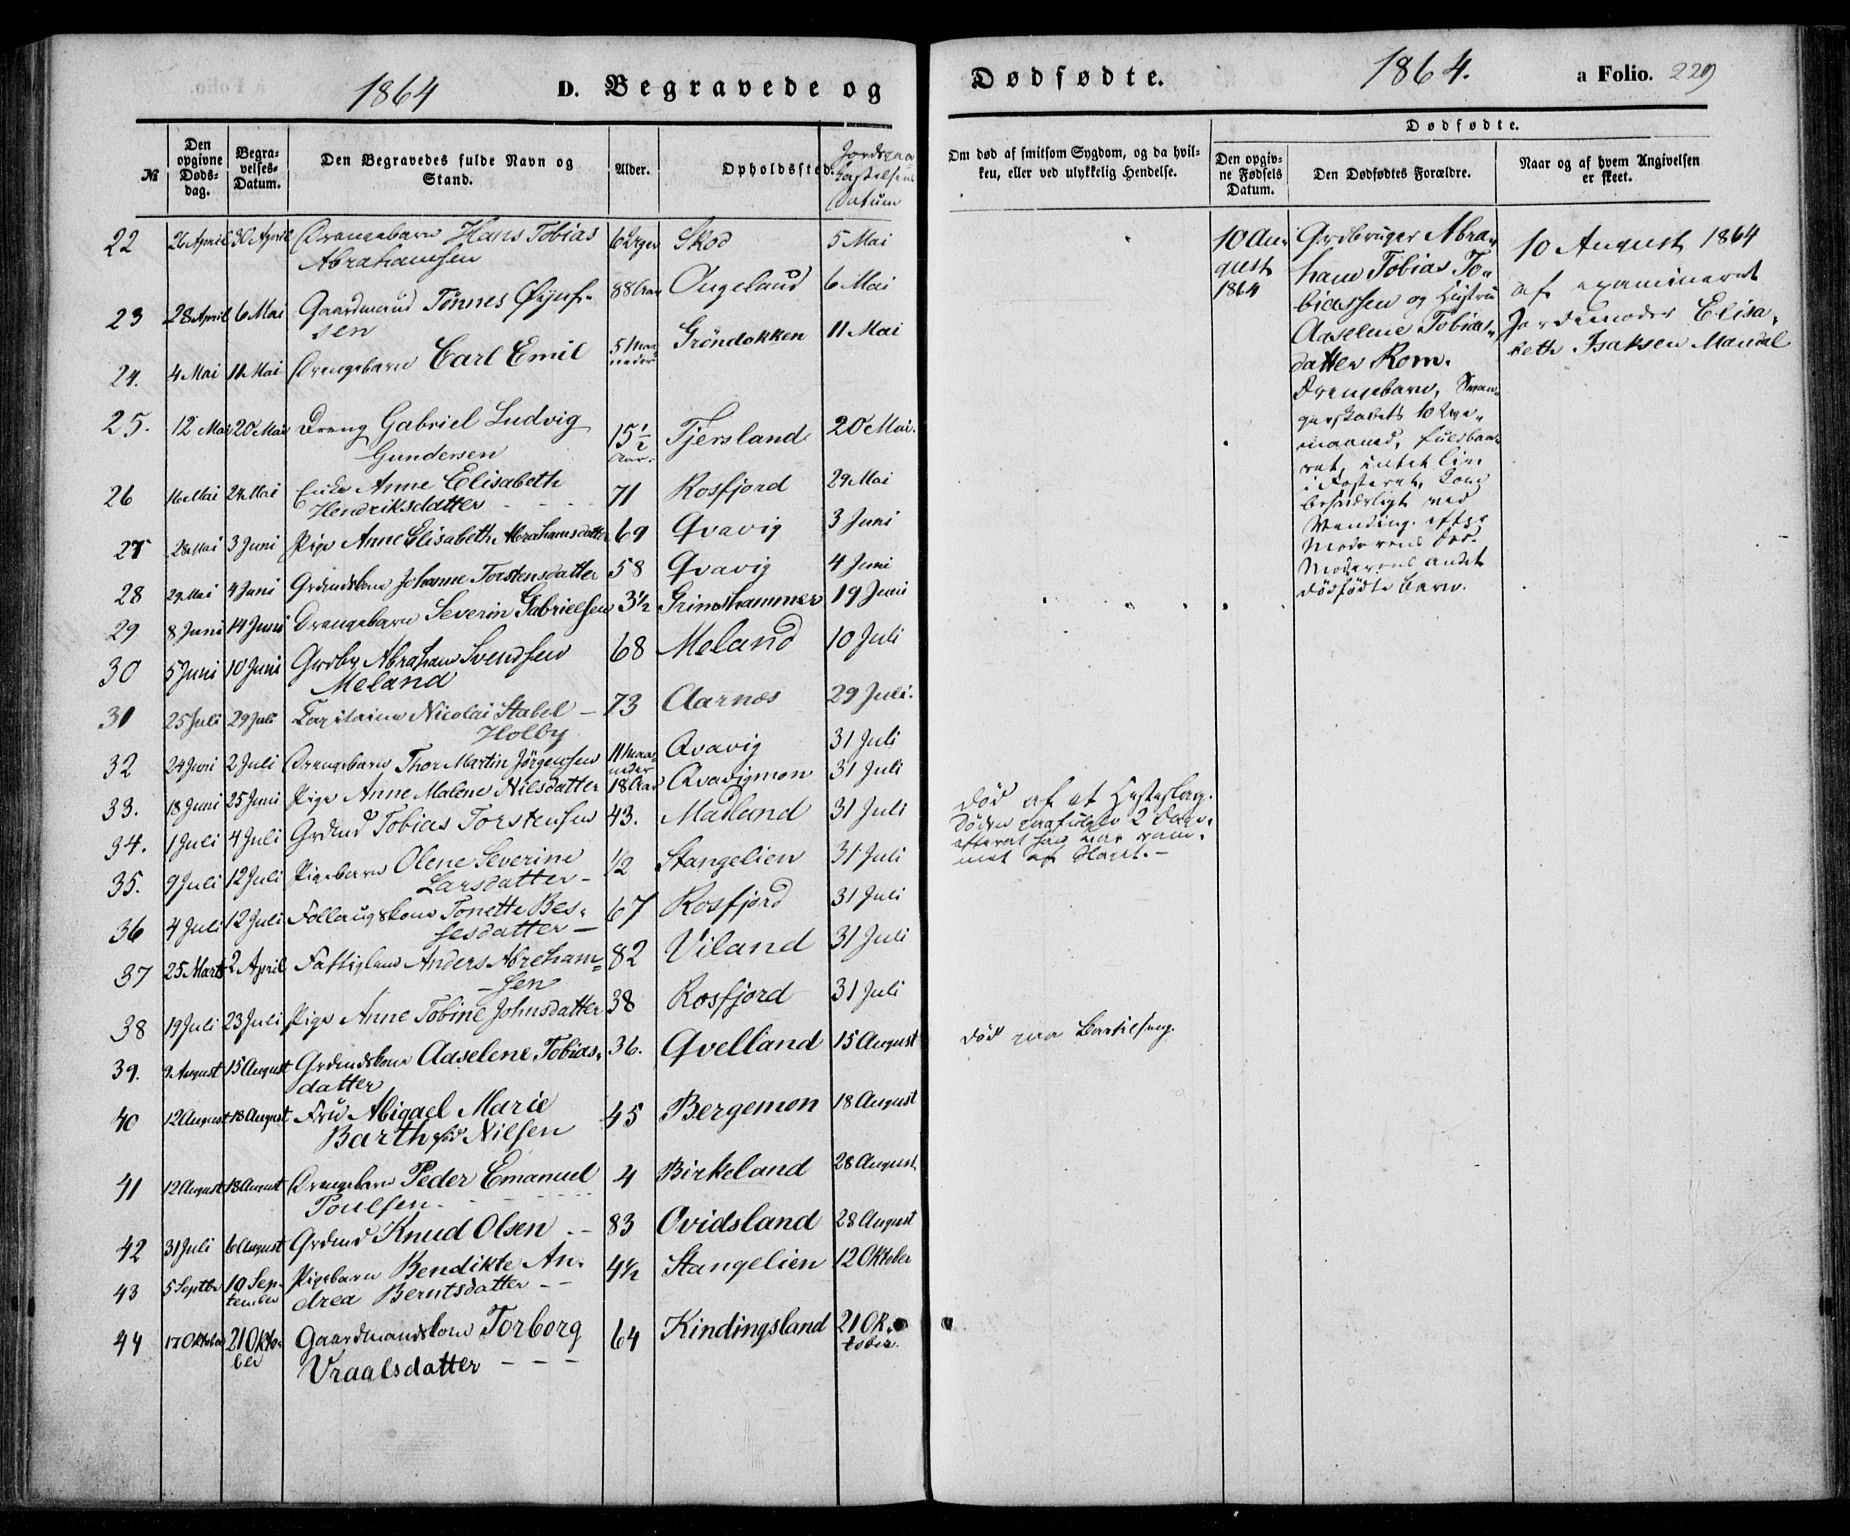 1864 D. Begravede og
№ Den opgivne Døds-dag. Begra-velses-Datum. Den Begravedes fulde Navn og Stand. Alder. Opholdssted. Datum
22 26 April 30 April Drengebarn Hans Tobias 6 Uger Skod 5 Mai
Abrahamsen
23 28 April 6 Mai Gaardmand Tønnes 88 Aar Augeland 6 Mai
sen
24. 4 Mai 11 Mai Drengebarn Carl Emil 5 Maaneder Gröndokken 11 Mai
25. 12 Mai 20 Mai Dreng Gabriel Ludvig 15½ Aar. Tjersland 20 Mai.
Gundersen
26 16 Mai 24 Mai Enke Anne Elisabeth 71 Rosfjord 24 Mai
Hendriksdatter
27 28 Mai 3 Juni Pige Anne Elisabeth Abrahamsdatter 69 Qvavig 3 Juni
28 29 Mai 4 Juni Grdmdskone Johanne Torstensdatter 58 Qvavig 4 Juni
29 8 Juni 14 Juni Drengebarn Severin Gabrielsen 3½ Grimshammer 19 Juni
30 5 Juni 10 Juni Grdbr Abraham Svendsen 68 Meland 10 Juli
Meland
31 25 Juli 29 Juli Capitaine Nicolai Stabel – 73 Aarnes 29 Juli.
Holby
32 24 Juni 2 Juli Drengebarn Thor Martin Jörgensen 11 Maaneder Qvavig 31 Juli
33. 18 Juni 25 Juni Pige Anne Malene Nilsdatter 18 Aar Qvavigmon 31 Juli
34. 1 Juli 4 Juli Grdmd Tobias Torstensen 43. Madland 31 Juli
35. 9 Juli 12 Juli Pigebarn Olene Severine ½ Stangelien 31 Juli
Larsdatter –
36 4 Juli 12 Juli Follaugskone Tonette Bes- 67 Rosfjord 31 Juli
sesdatter –
37 25 Marts 2 April Fattiglem Anders Abraham- 82 Viland 31 Juli
sen
38 19 Juli 23 Juli Pige Anne Tobine Johnsdatter 38 Rosfjord 31 Juli
39. 9 August 15 August Grdmdskone Aaselene Tobias- 36. Qvelland 15 August
datter
40 12 August 18 August Fru Abigael Marie 45 Bergemon 18 August
Barth født Nilsen
41 12 August 18 August Drengebarn Peder Emanuel 4 Birkeland 28 August
Poulsen
42 31 Juli 6 August Grdmd Knud Olsen 83 Ovidsland 28 August
43 5 Septbr 10 September Pigebarn Bendikte An- 4½ Stangelien 12 Oktober
drea Berntsdatter
44 17 Oktober 21 Oktober Gaardmandskone Torborg 64 Kindingsland 21 Oktober
Vraalsdatter
Dødfødte. 1864. a Folio. 229
Om død af smitsom Sygdom, og da hvil-
ken, eller ved ulykkelig Hendelse.
Dødfødte.
Den opgiv-
ne Fødsels
Datum.
Den Dødfødtes Forældre.
Naar og af hvem Angivelsen
er skeet.
Död af et Hesteslag.
Döden paafulgte 2 Dage
efterat han var ram-
met af Slaget. –
Död paa Barselseng.
10 Au-
gust
1864
Grdbruger Abra-
ham Tobias To-
biassen og Hustru
Aaselene Tobias-
datter Rom.
Drengebarn, Svan-
gerskabets 10de
maaned, fuldbaa-
ret, intet Liv
i Fosteret, kom
besværligt ved
Vending. efter
Moderens
Moderens andet
dödfödte Barn.
10 August 1864
af examineret
Jordemoder Elisa-
beth Isaksen Mandal